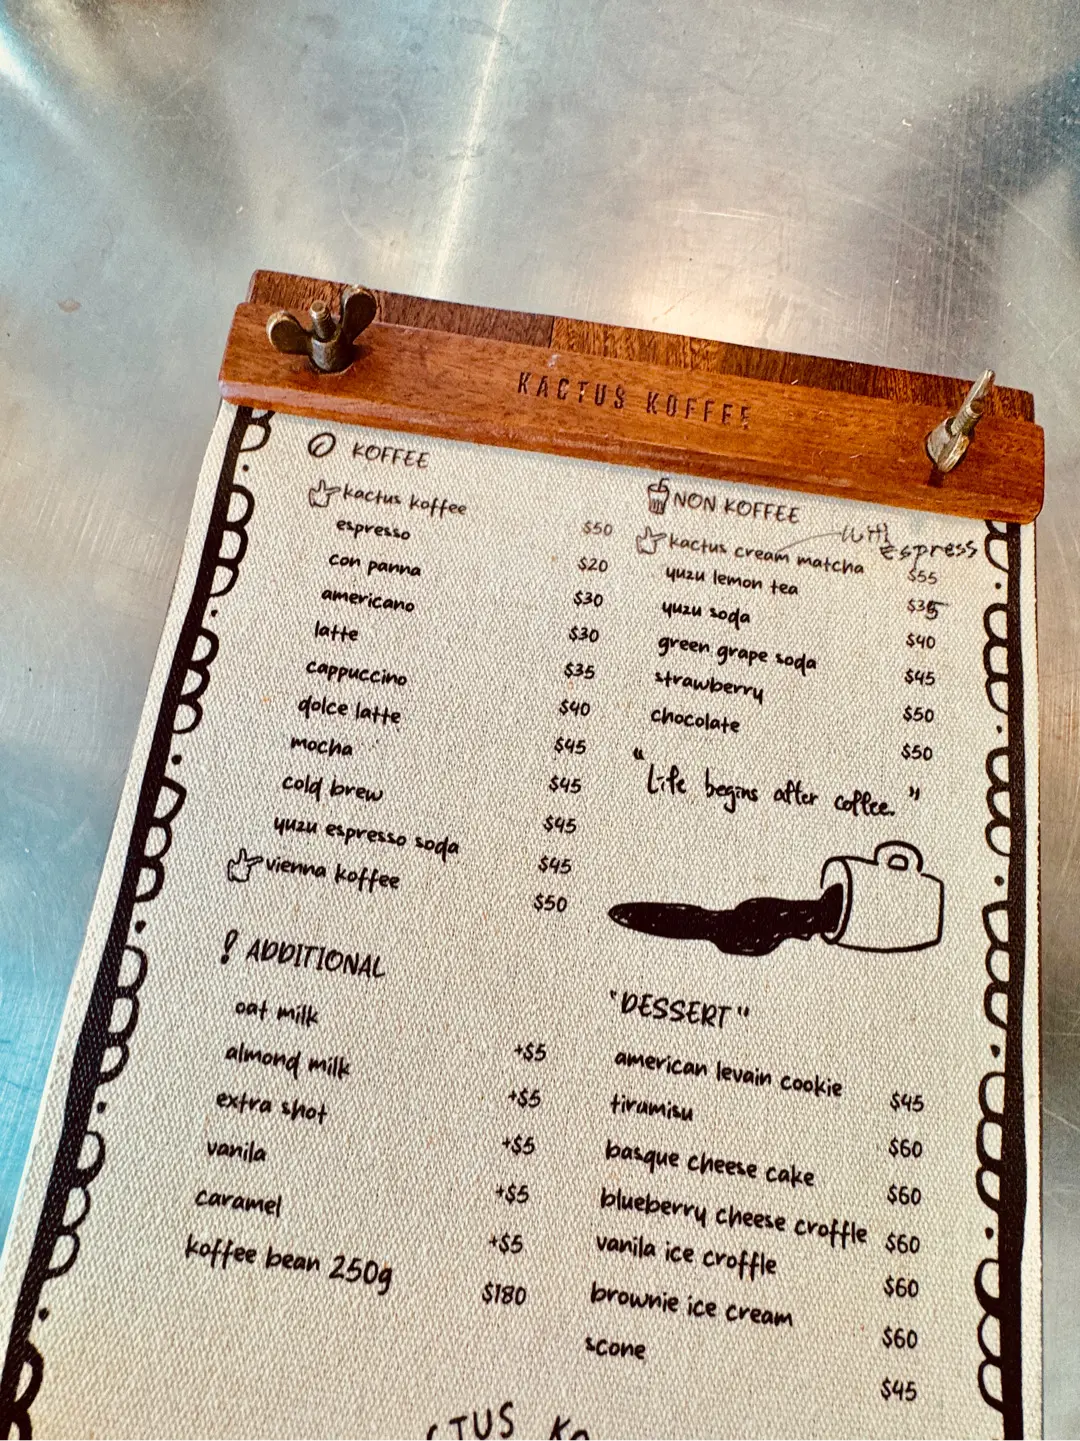 KACTUS KOFFEE
KOFFEE
kactus koffee $50
espresso $20
con panna $30
americano $30
latte $35
cappuccino $40
dolce latte $45
mocha $45
cold brew $45
yuzu espresso soda $45
vienna koffee $50
ADDITIONAL
oat milk +$5
almond milk +$5
extra shot +$5
vanila +$5
caramel +$5
koffee bean 250g $180
NON KOFFEE
with
espress
kactus cream matcha $55
yuzu lemon tea $35
yuzu soda $40
green grape soda $45
strawberry $50
chocolate $50
"Life begins after coffee."
"DESSERT"
american levain cookie $45
tiramisu $60
basque cheese cake $60
blueberry cheese croffle $60
vanila ice croffle $60
brownie ice cream $60
scone $45